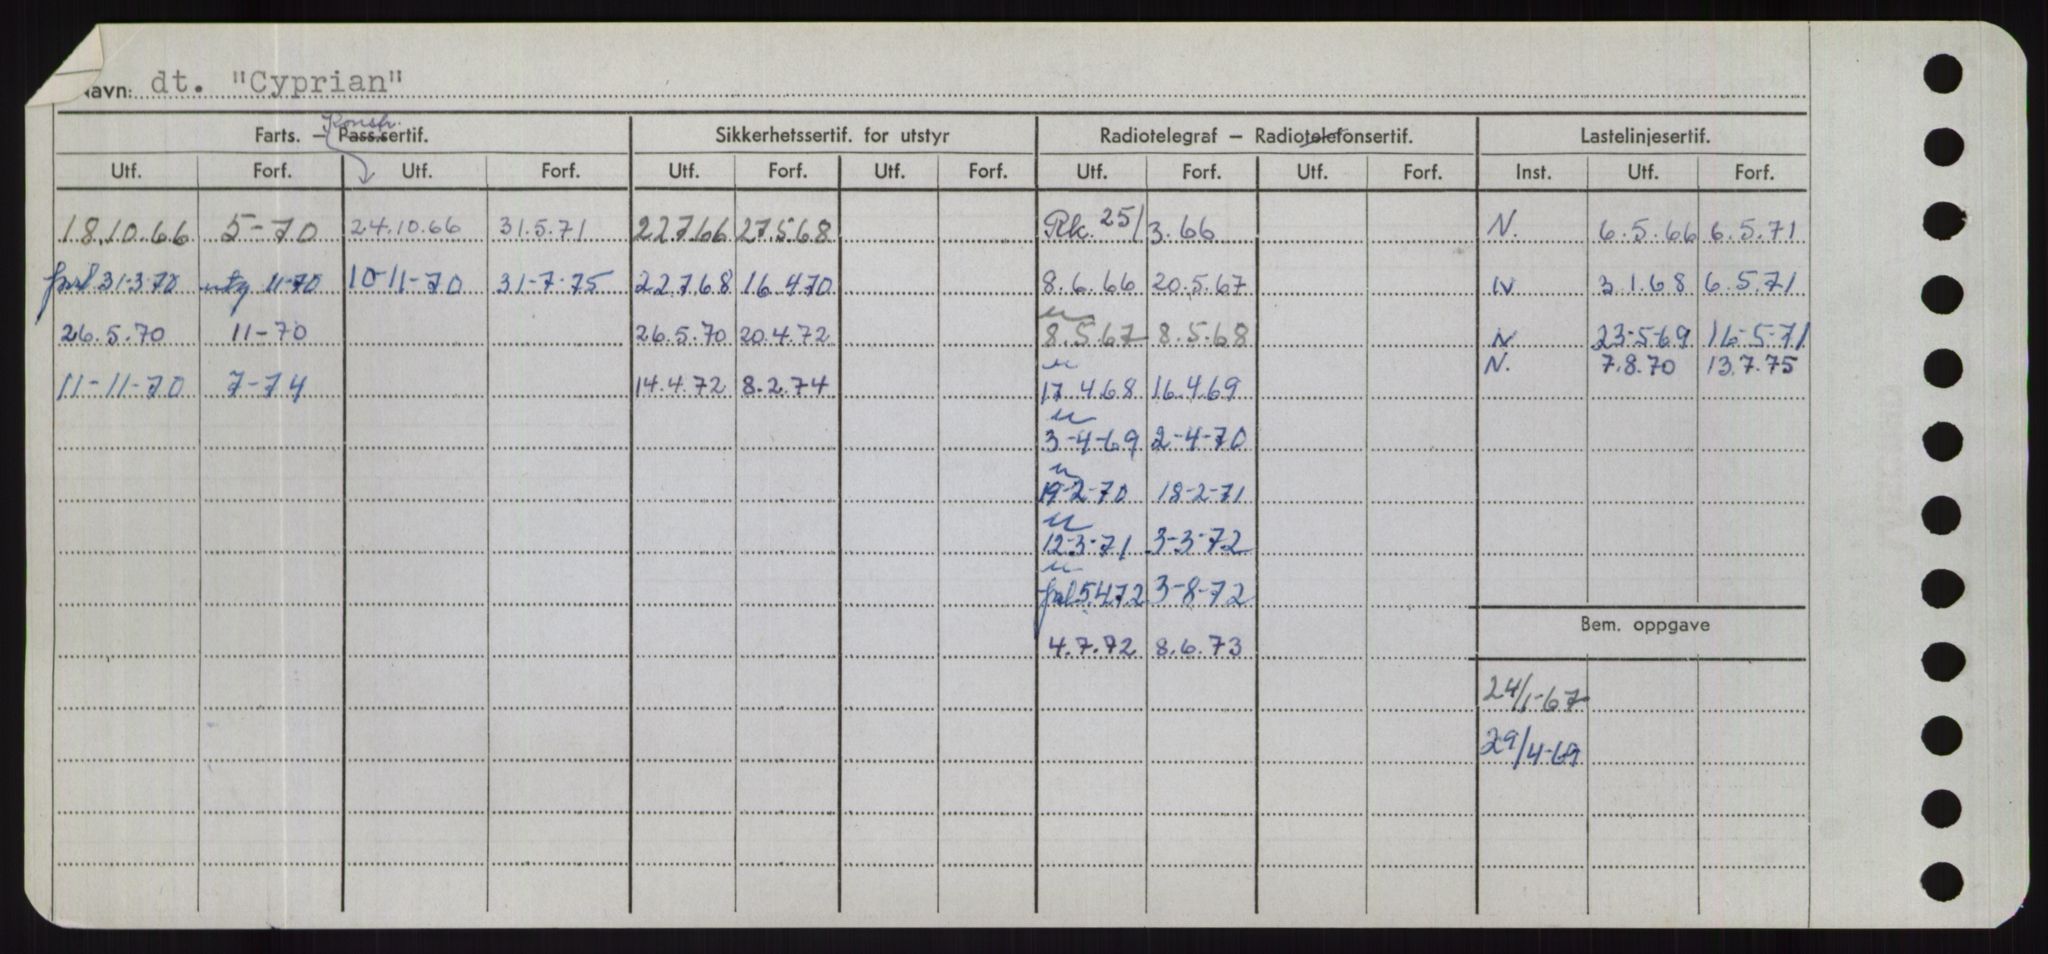 Navn: dt. "Cyprian"
Konstr.
Farts. — Pass.sertif. Sikkerhetssertif. for utstyr Radiotelegraf — Radiotelefonsertif. Lastelinjesertif.
Utf. Forf. Utf. Forf. Utf. Forf. Utf. Forf. Utf. Forf. Utf. Forf. Inst. Utf. Forf.
18.10.66 5-70 24.10.66 31.5.71 22.7.66 27.5.68 Rk. 25/3.66 N. 6.5.66 6.5.71
forl 31-3-70 utg 11-70 10-11-70 31-7-75 22.7.68 16.4.70 8.6.66 20.5.67 N 3.1.68 6.5.71
26.5.70 11-70 26.5.70 20.4.72 8.5.67 8.5.68 N 23-5-69 16-5-71
N. 7.8.70 13.7.75
11-11-70 7-74 14.4.72 8.2.74 17.4.68 16.4.69
3-4-69 2-4-70
19-2-70 18-2-71
12-3-71 3-3-72
5.4.72 3-8-72
Bem. oppgave
4.7.72 8.6.73
24/1-67
29/4-69